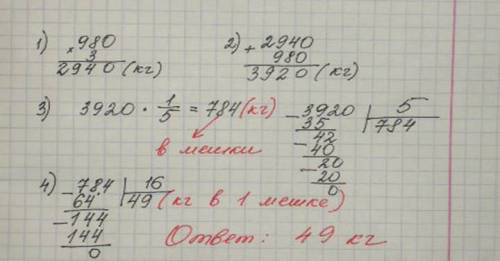 1) × 980
3
2940 (кг)
2) + 2940
980
3920 (кг)
3) 3920 · 1/5 = 784 (кг)
в мешки
- 3920 | 5
35 | 784
- 42
40
- 20
20
0
4) - 784 | 16
64 | 49 (кг в 1 мешке)
- 144
144
0
Ответ: 49 кг